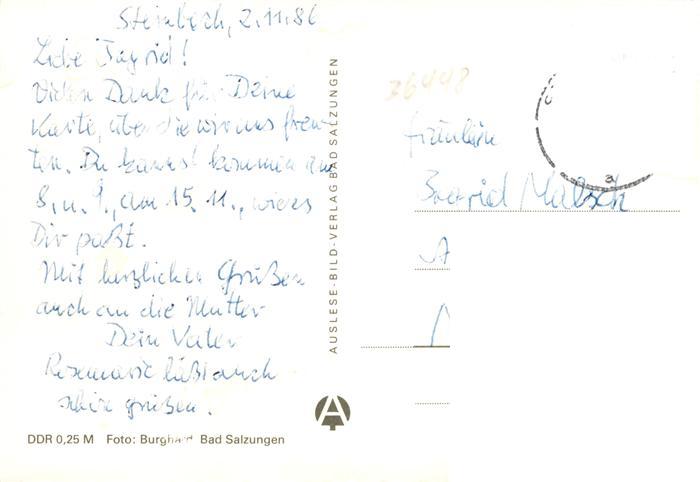 Steinbach, 2.11.86
Liebe Ingrid!
Vielen Dank für Deine
Karte, über die wir uns freu-
ten. Du kannst kommen am
8. u. 9., am 15. 11., wie es
Dir paßt.
Mit herzlichen Grüßen
auch an die Mutter
Dein Vater
Rosemarie läßt auch
schön grüßen.
DDR 0,25 M Foto: Burghard Bad Salzungen
AUSLESE-BILD-VERLAG BAD SALZUNGEN
36448
Fräulein
Ingrid Malsch
A